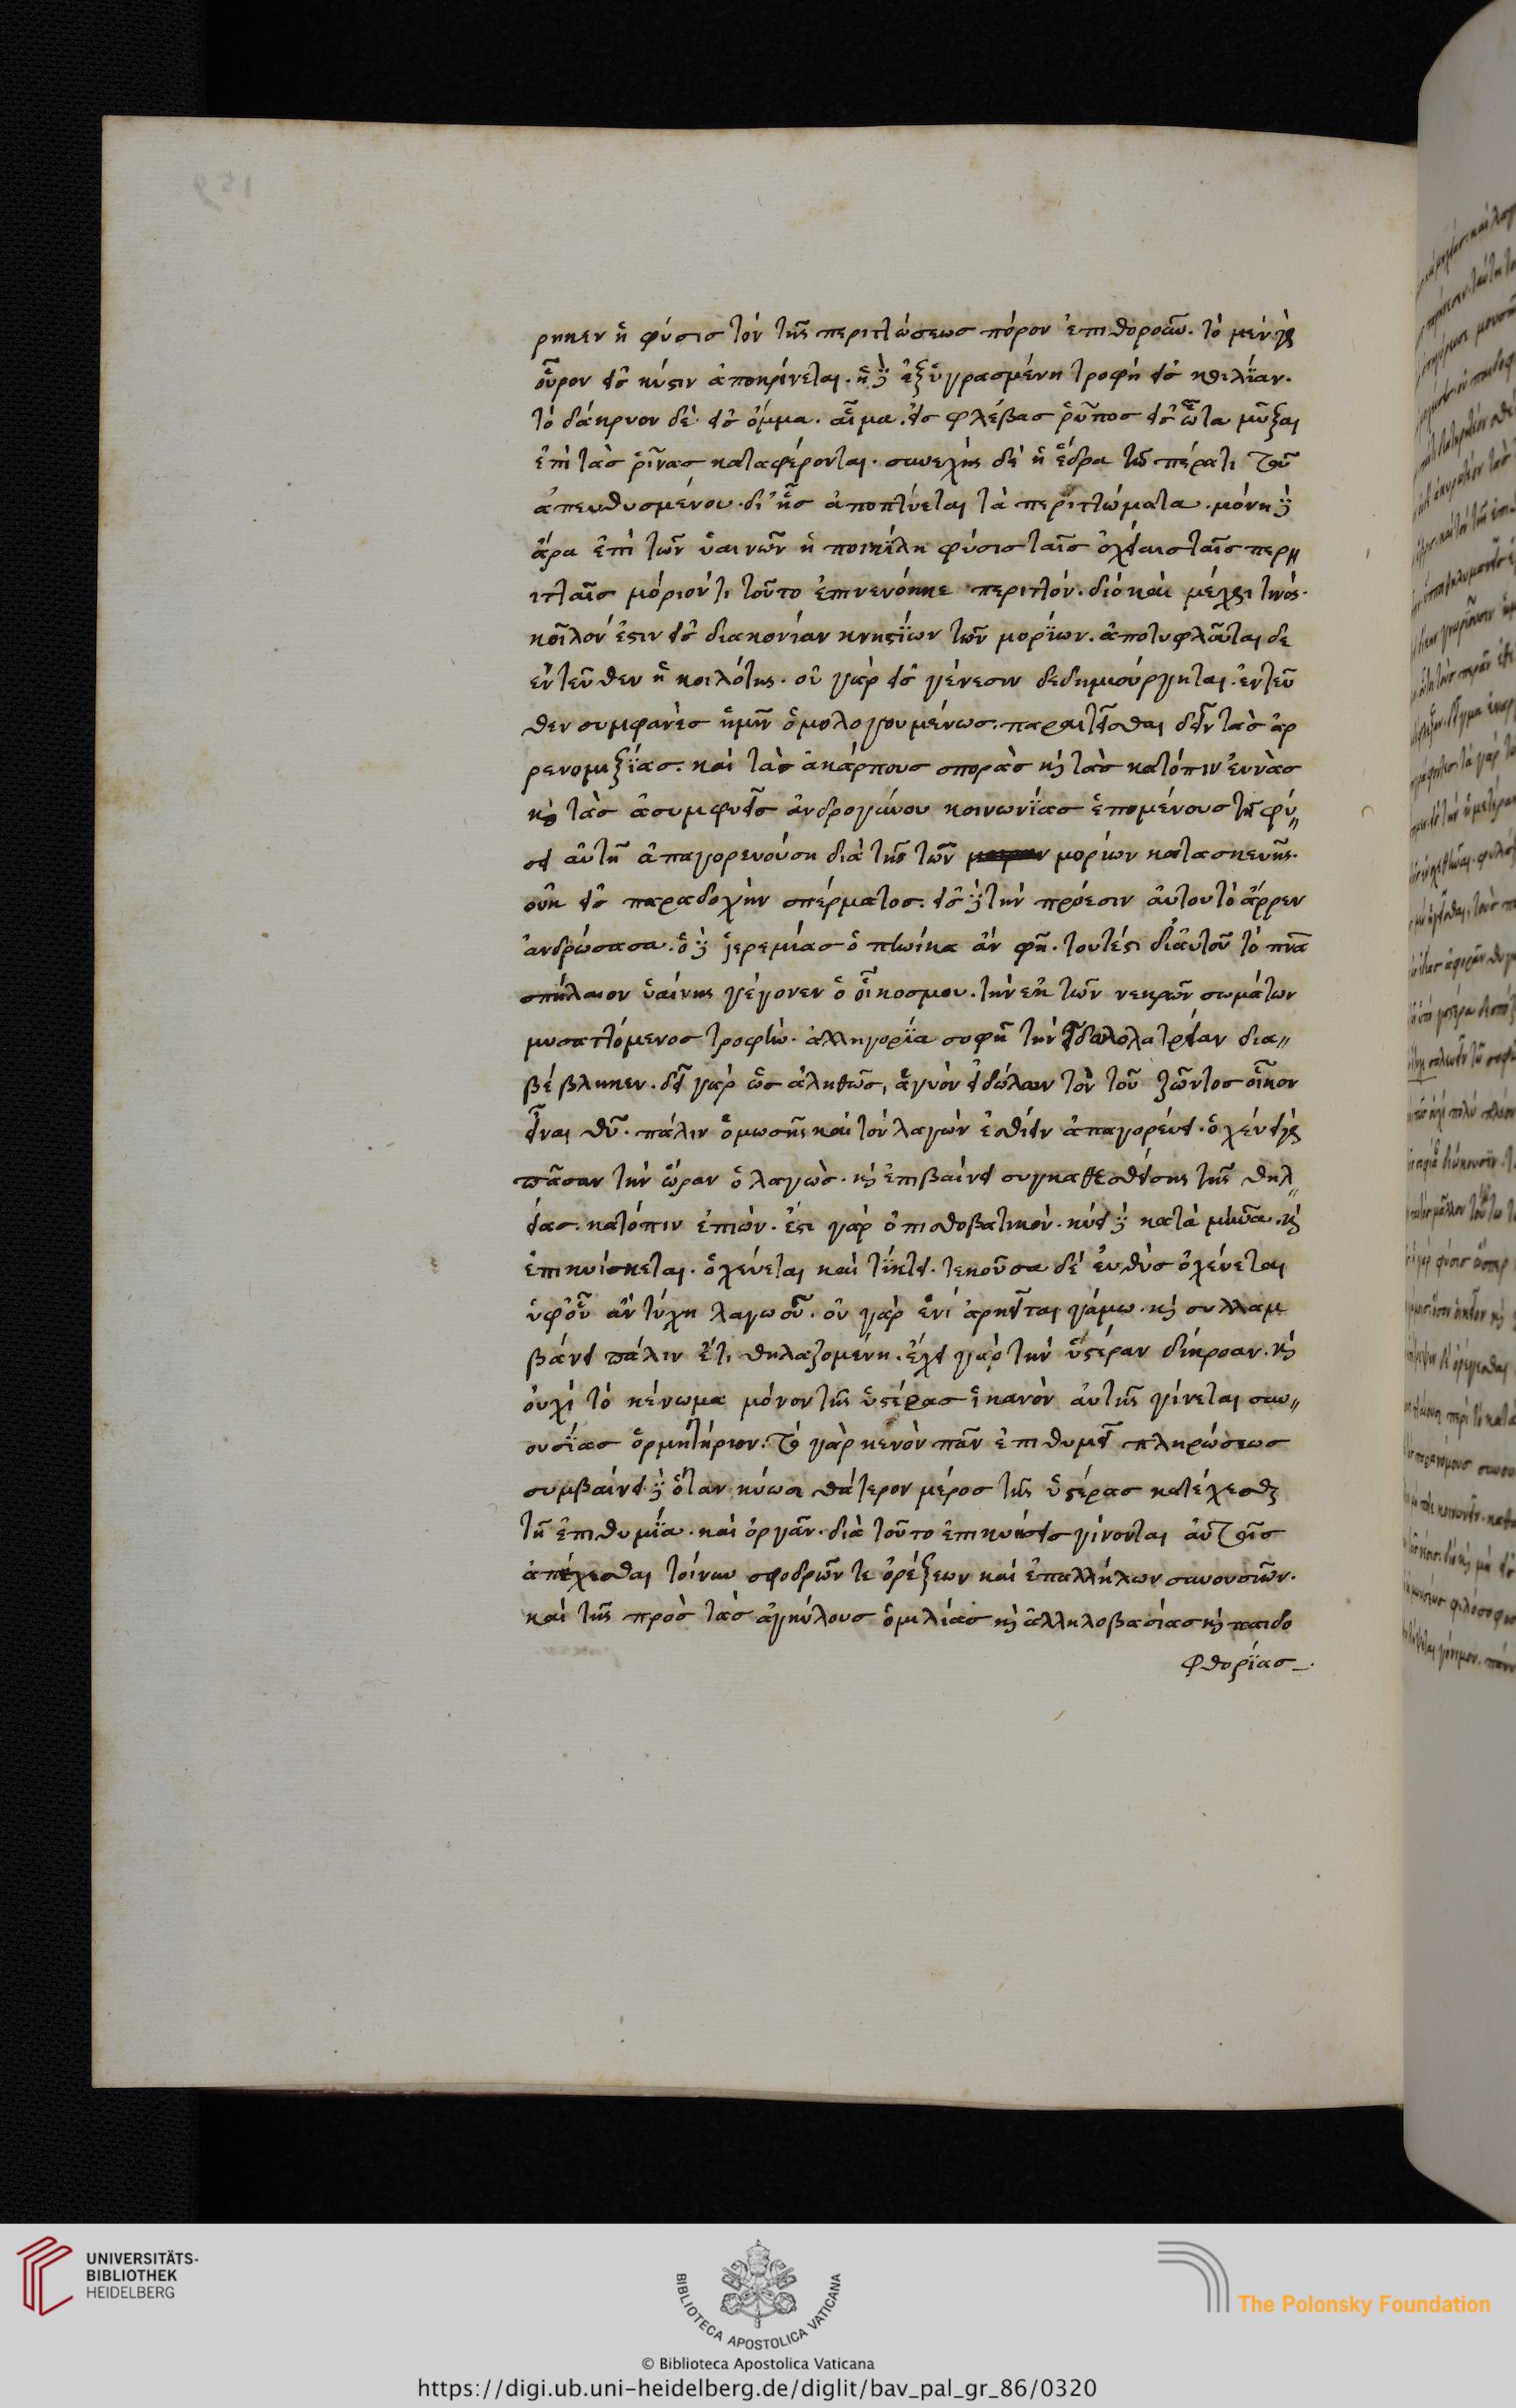 ρηκεν ἡ φύσις τὸν τῆς περιττώσεως πόρον ἐπιθοροῦν. τὸ μὲν γὰρ
οὖρον εἰς κύστιν ἀποκρίνεται. ἡ δὲ ἐξυγρασμένη τροφὴ εἰς κοιλίαν.
τὸ δάκρυον δὲ εἰς ὄμμα. αἷμα εἰς φλέβας ῥύπος εἰς ὦτα μύξαι
ἐπὶ τὰς ῥῖνας καταφέρονται. συνεχὴς δὲ ἡ ἕδρα τῷ πέρατι τοῦ
ἀπευθυσμένου. δι' ἧς ἀποπτύεται τὰ περιττώματα. μόνη δὲ
ἄρα ἐπὶ τῶν ὑαινῶν ἡ ποικίλη φύσις ταῖς ὀχείαις ταῖς περι
ιτταῖς μόριόν τι τοῦτο ἐπινενόηκε περιττόν. διὸ καὶ μέχρι τινός.
κοῖλόν ἐστιν εἰς διακονίαν κνηστίων τῶν μορίων. ἀποτυφλοῦται δὲ
ἐντεῦθεν ἡ κοιλότης. οὐ γὰρ εἰς γένεσιν δεδημιούργηται. ἐντεῦ
θεν συμφανὲς ἡμῖν ὁμολογουμένως. παραιτεῖσθαι δεῖν τὰς ἀρ
ρενομιξίας. καὶ τὰς ἀκάρπους σπορὰς καὶ τὰς κατόπιν εὐνὰς
καὶ τὰς ἀσυμφυεῖς ἀνδρογύνου κοινωνίας ἑπομένους τῇ φύ〃
σει αὐτῇ ἀπαγορευούσῃ διὰ τῆς τῶν μορίων κατασκευῆς.
οὐκ εἰς παραδοχὴν σπέρματος. εἰς δὲ τὴν πρόεσιν αὐτοῦ τὸ ἄρρεν
ἀνδρώσασα. ὁ δὲ ἱερεμίας ὁ πτωίκα ἂν φῇ. τουτέστι δι' αὐτοῦ τὸ πνα
σπήλαιον ὑαίνης γέγονεν ὁ οἶκος μου. τὴν ἐκ τῶν νεκρῶν σωμάτων
μυσαττόμενος τροφὴν. ἀλληγορία σοφῇ τὴν εἰδωλολατρείαν δια〃
βέβληκεν. δεῖ γὰρ ὡς ἀληθῶς, ἁγνὸν εἰδώλων τὸν τοῦ ζῶντος οἶκον
εἶναι θυ. πάλιν ὁ μωσῆς καὶ τὸν λαγὼν ἐσθίειν ἀπαγορεύει. ὀχεύει γὰρ
πᾶσαν τὴν ὥραν ὁ λαγὼς. καὶ ἐπιβαίνει συγκαθεσθείσης τῆς θηλ〃
είας. κατόπιν ἐπιών. ἔστι γὰρ ὀπισθοβατικόν. κύει δὲ κατὰ μῆνα. καὶ
ἐπικυΐσκεται. ὀχεύεται καὶ τίκτει. τεκοῦσα δὲ εὐθὺς ὀχεύεται
ὑφ' οὗ ἂν τύχῃ λαγωοῦ. οὐ γὰρ ἑνὶ ἀρκεῖται γάμῳ. καὶ συλλαμ
βάνει πάλιν ἔτι θηλαζομένη. ἔχει γὰρ τὴν ὑστέραν δίκροαν. καὶ
οὐχὶ τὸ κένωμα μόνον τῆς ὑστέρας ἱκανὸν αὐτῆς γίνεται συν〃
ουσίας ὁρμητήριον. τὸ γὰρ κενὸν πᾶν ἐπιθυμεῖ πληρώσεως
συμβαίνει δὲ ὅταν κύωσι θάτερον μέρος τῆς ὑστέρας κατέχεσθαι
τῇ ἐπιθυμίᾳ. καὶ ὀργᾶν. διὰ τοῦτο ἐπικυήσεις γίνονται αὐτοῖς
ἀπέχεσθαι τοίνυν σφοδρῶν τε ὀρέξεων καὶ ἐπαλλήλων συνουσιῶν.
καὶ τῆς πρὸς τὰς ἀγκύλους ὁμιλίας καὶ ἀλληλοβασίας καὶ παιδο
φθορίας.
UNIVERSITÄTS-
BIBLIOTHEK
HEIDELBERG
BIBLIOTECA APOSTOLICA VATICANA
The Polonsky Foundation
© Biblioteca Apostolica Vaticana
https://digi.ub.uni-heidelberg.de/diglit/bav_pal_gr_86/0320